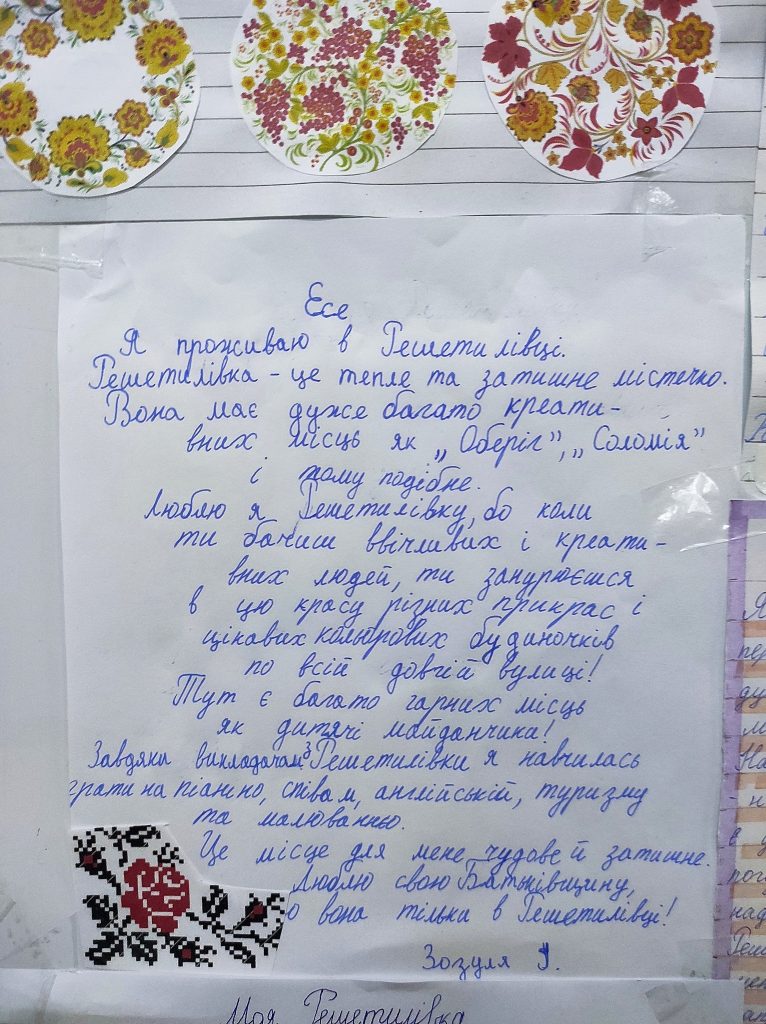 Есе
Я проживаю в Решетилівці.
Решетилівка - це тепле та затишне містечко.
Вона має дуже багато креати-
вних місць як „Оберіг”, „Соломія”
і тому подібне.
Люблю я Решетилівку, бо коли
ти бачиш ввічливих і креати-
вних людей, ти занурюєшся
в цю красу різних прикрас і
цікавих кольорових будиночків
по всій довгій вулиці!
Тут є багато гарних місць
як дитячі майданчики!
Завдяки викладачам з Решетилівки я навчилась
грати на піаніно, співам, англійській, туризму
та малюванню.
Це місце для мене чудове й затишне.
Люблю свою Батьківщину,
о вона тільки в Решетилівці!
Зозуля
Моя Решетилівка